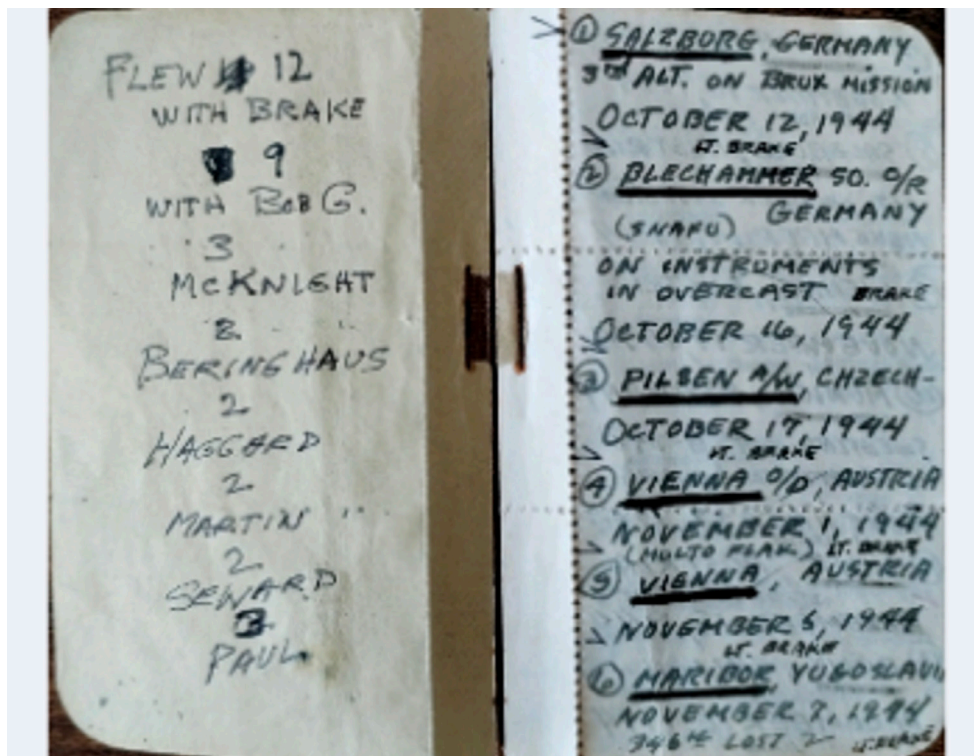 FLEW 12
WITH BRAKE
9
WITH BOB G.
3
MCKNIGHT
2
BERINGHAUS
2
HAGGARD
2
MARTIN
2
SEWARD
3
PAUL
① SALZBURG, GERMANY
3RD ALT. ON BRUX MISSION
OCTOBER 12, 1944
LT. BRAKE
② BLECHAMMER SO. O/R
GERMANY
(SNAFU)
ON INSTRUMENTS
IN OVERCAST BRAKE
OCTOBER 16, 1944
③ PILSEN A/W, CHZECH-
OCTOBER 17, 1944
LT. BRAKE
④ VIENNA O/D, AUSTRIA
NOVEMBER 1, 1944
(MULTO FLAK) LT. BRAKE
⑤ VIENNA, AUSTRIA
NOVEMBER 5, 1944
LT. BRAKE
⑥ MARIBOR, YUGOSLAVI
NOVEMBER 7, 1944
346TH LOST 2 LT. BRAKE